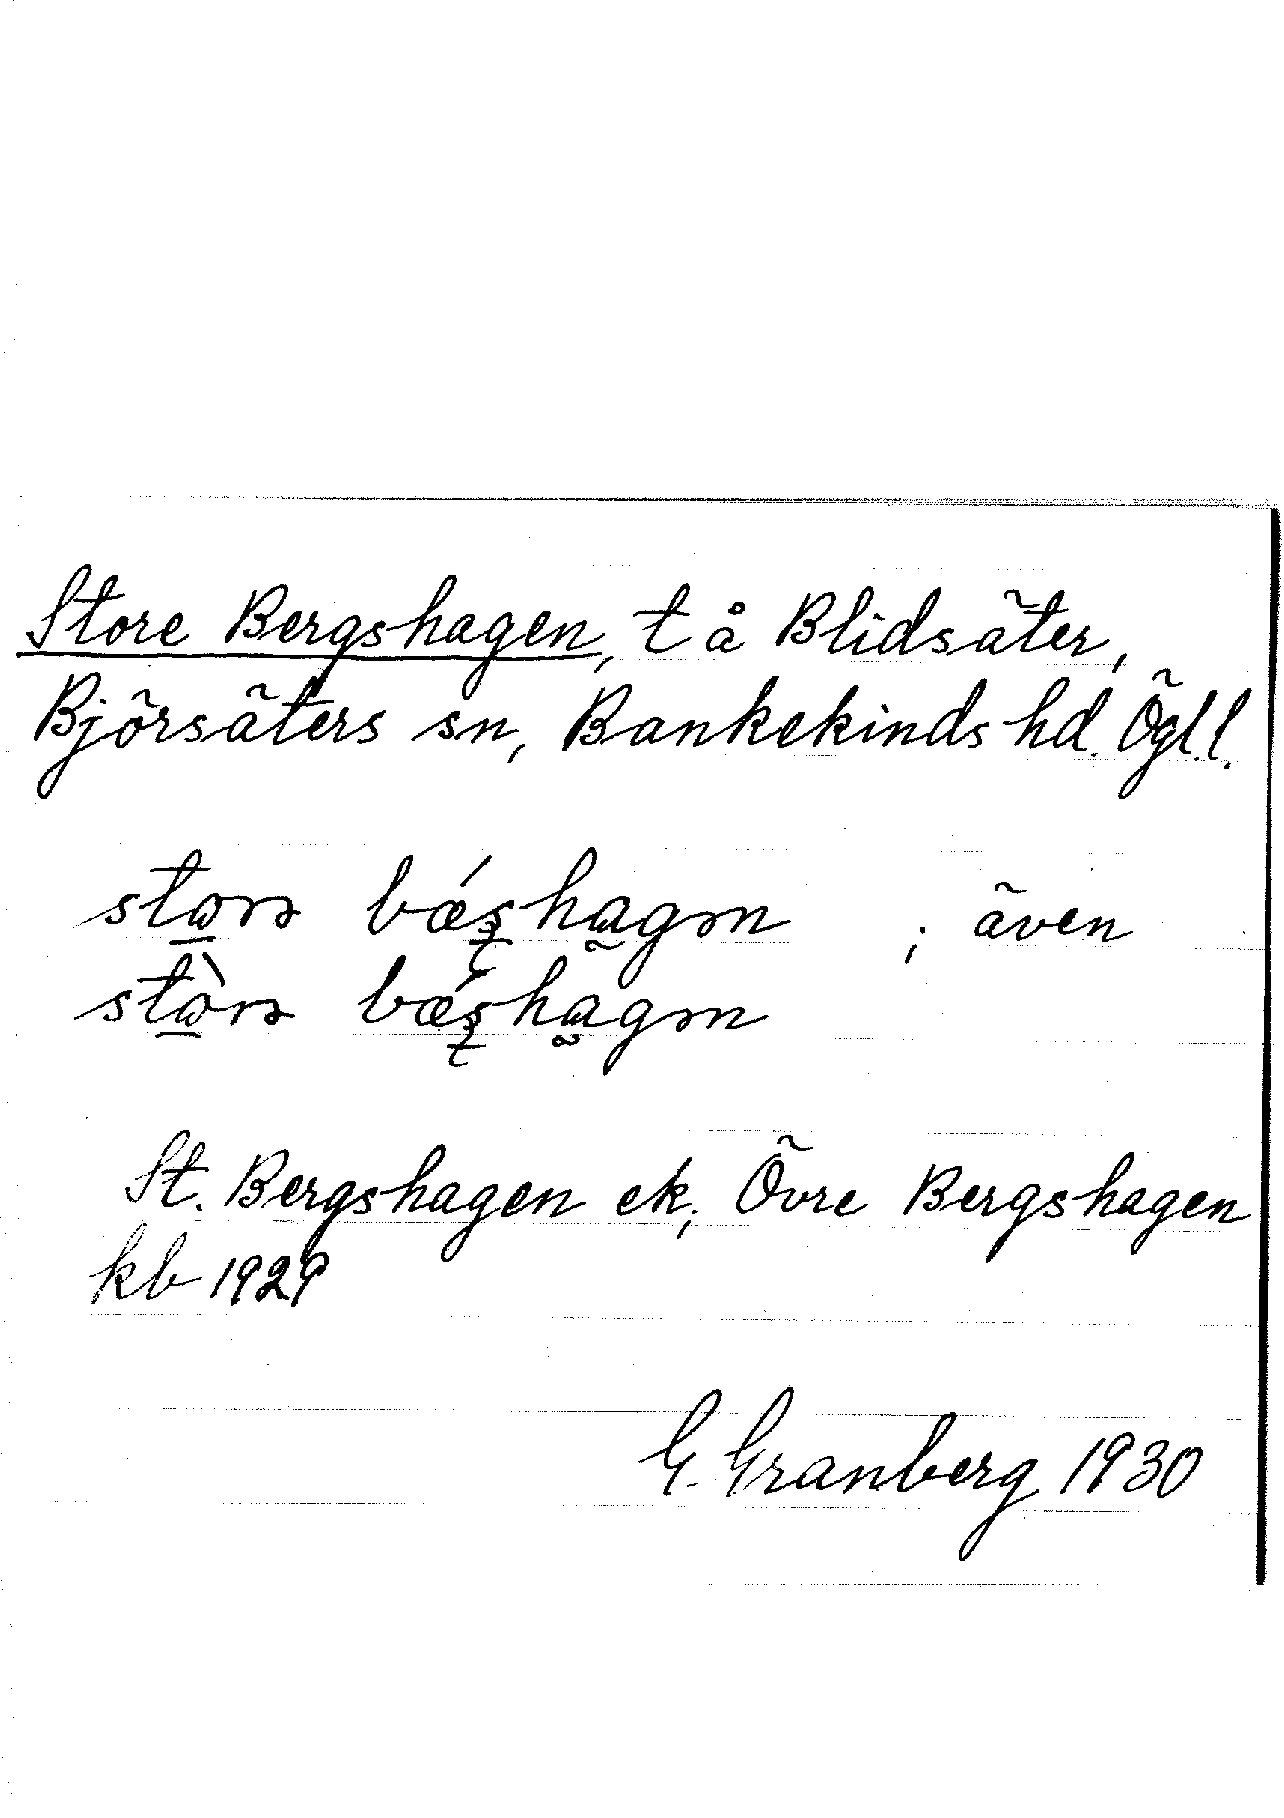 Store Bergshagen, t å Blidsäter,
Björsäters sn, Bankekinds hd. Ögl.l.
; även
St. Bergshagen ek; Övre Bergshagen
kb 1929
G. Granberg 1930